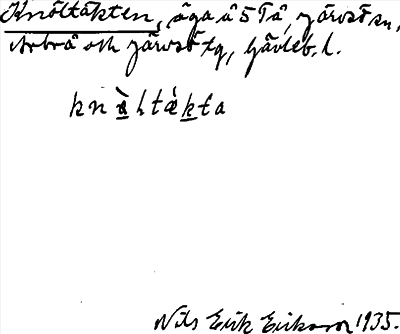 Knöltäkten, äga å 5 Tå, Järvsö sn,
Arbrå och Järvsö tg, Gävleb. l.
knø̀ltæ̀kta
Nils Erik Eriksson 1935.